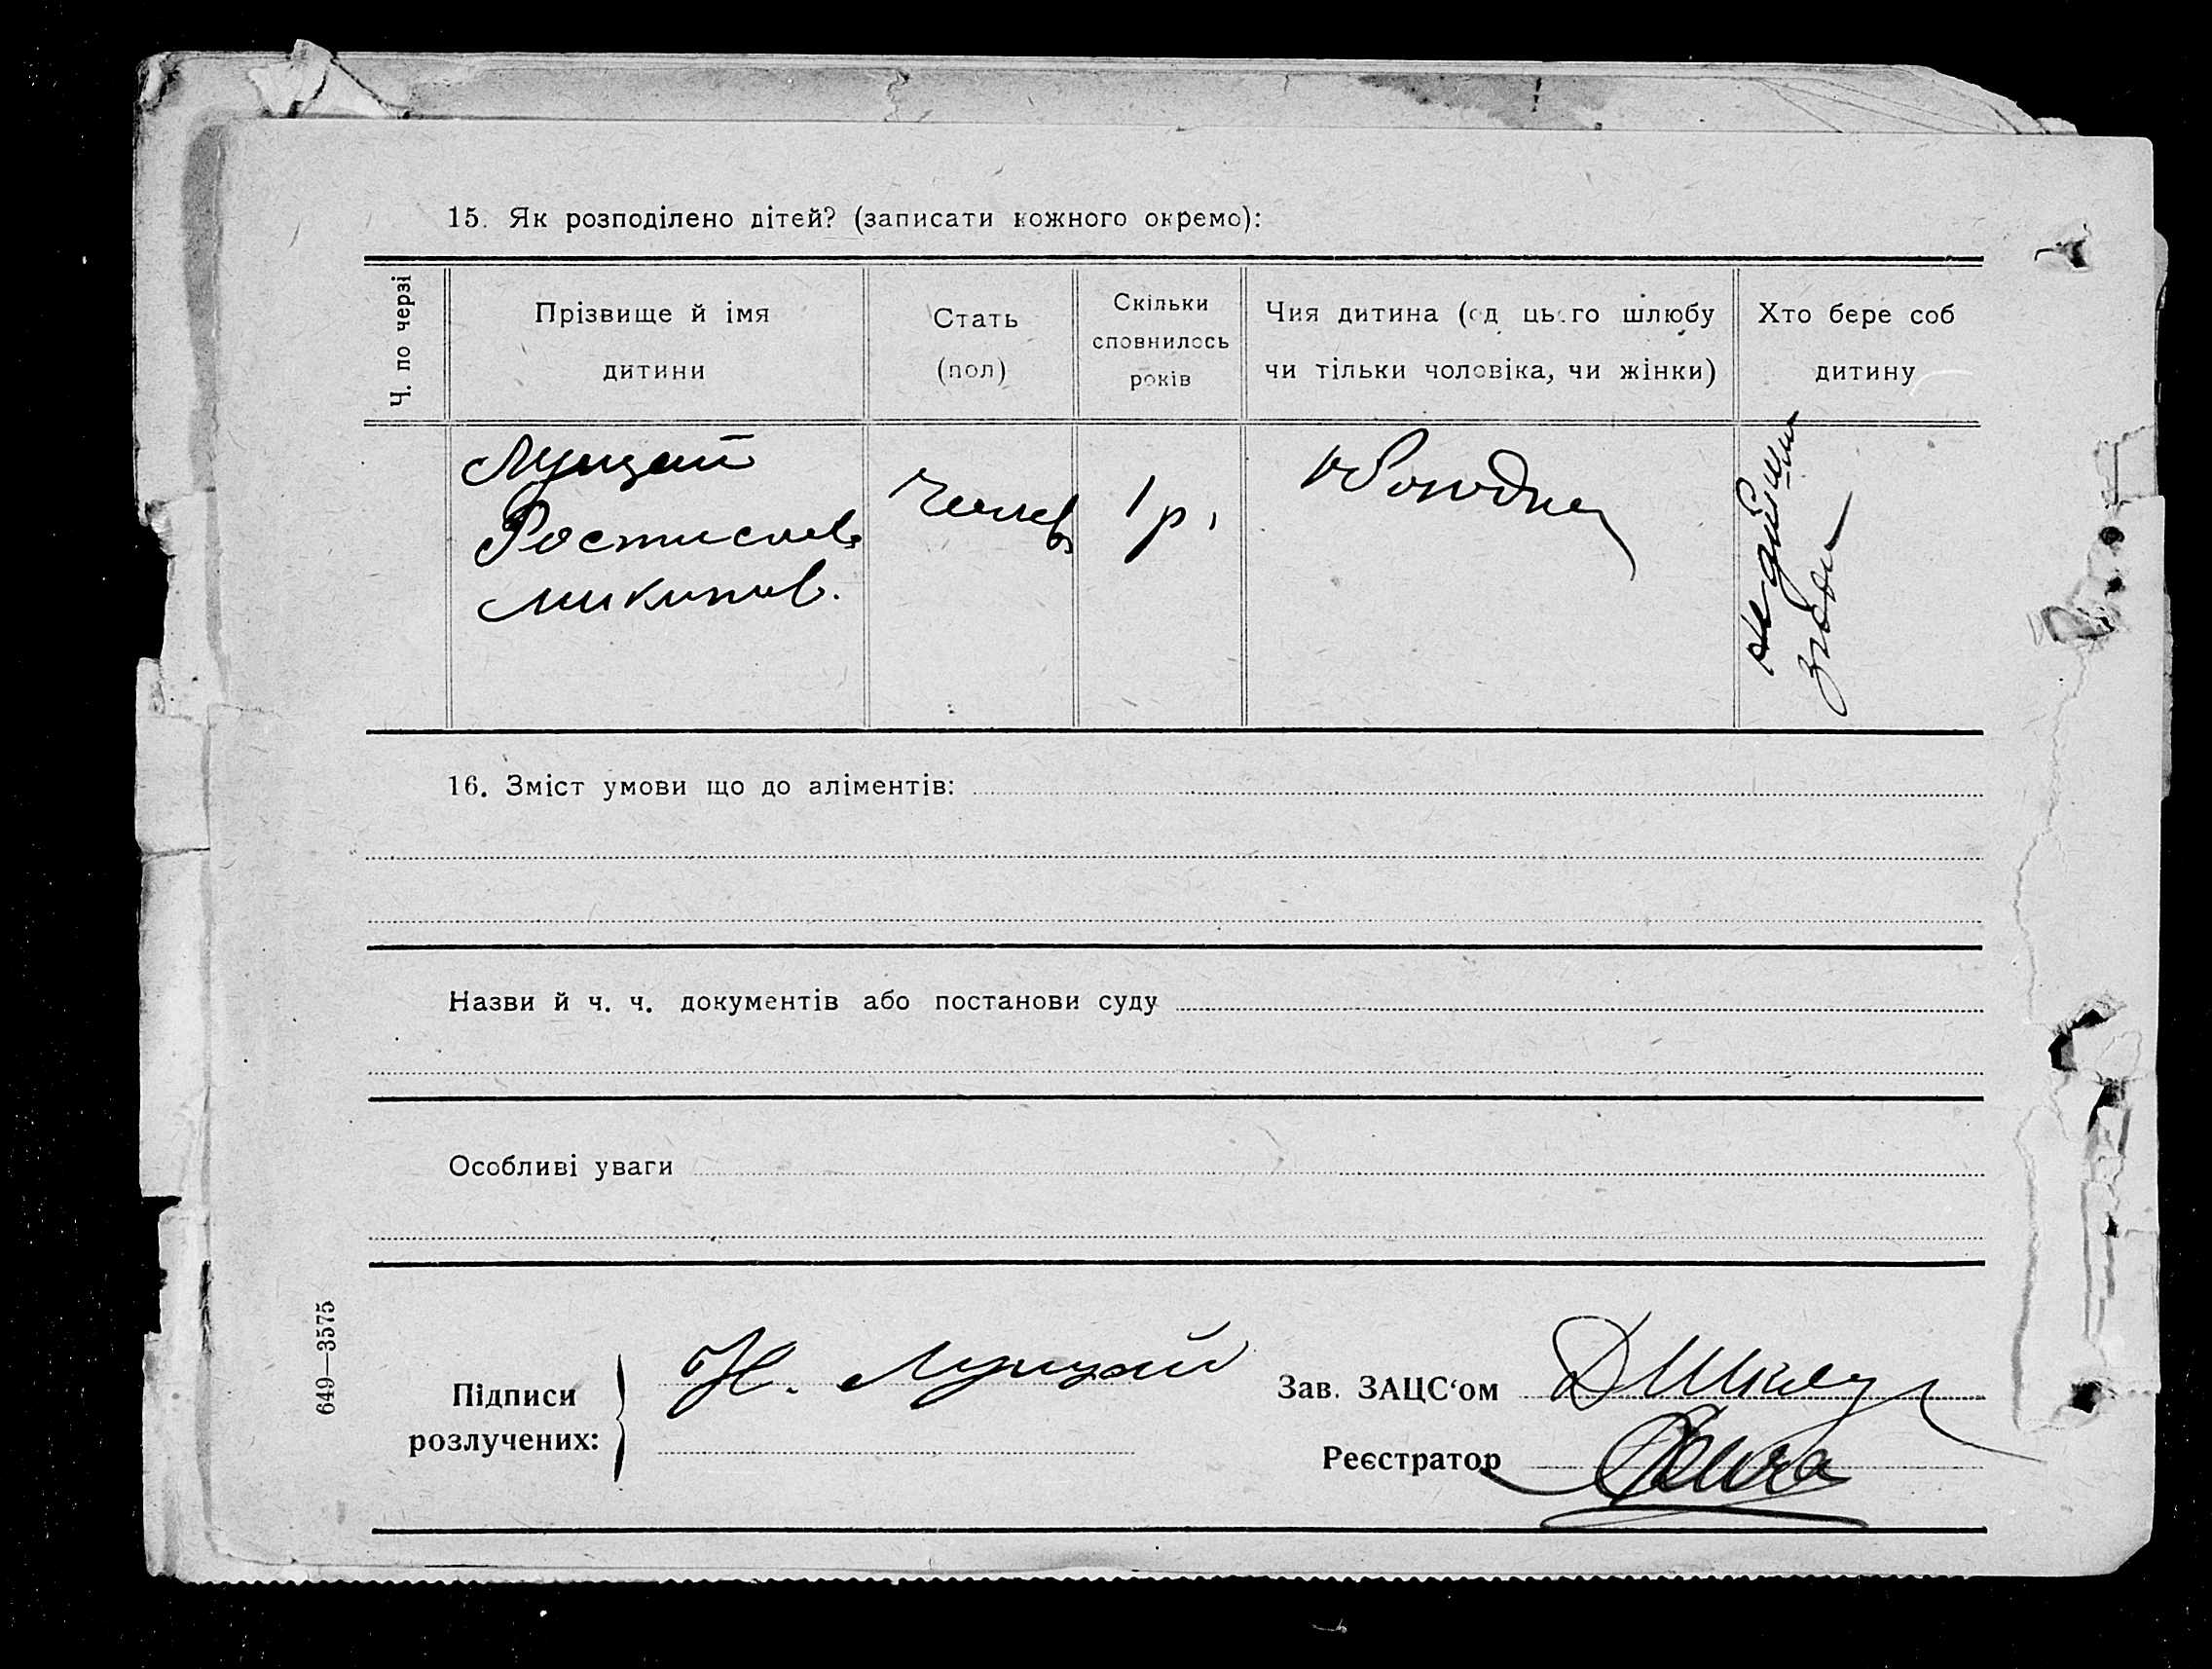 15. Як розподілено дітей? (записати кожного окремо):
Ч. по черзі
Прізвище й імя
дитини
Стать
(пол)
Скільки
сповнилось
років
Чия дитина (од цього шлюбу
чи тільки чоловіка, чи жінки)
Хто бере соб
дитину
Луцкий
Ростислав
Микитов.
Челов
1 р.
не дійшли
згоди
16. Зміст умови що до аліментів:
Назви й ч. ч. документів або постанови суду
Особливі уваги
649—3575
Підписи
розлучених:
Н. Луцкий
Зав. ЗАЦС‘ом
Реєстратор